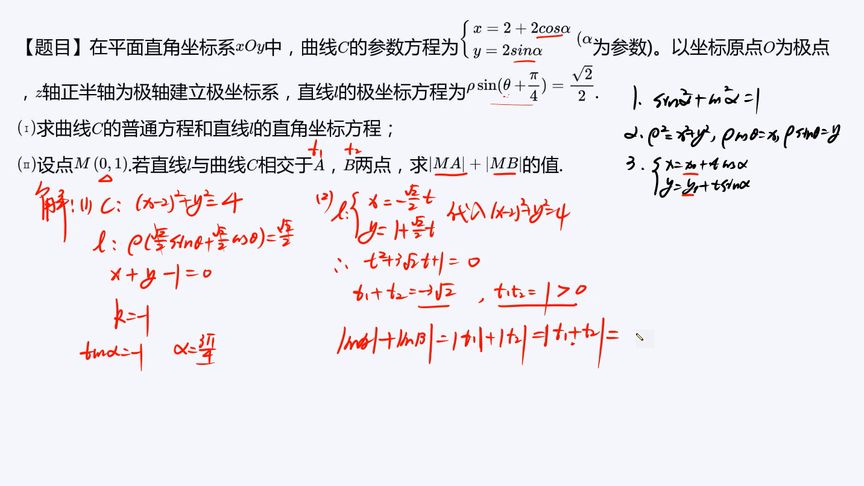 【题目】在平面直角坐标系xOy中，曲线C的参数方程为{x=2+2cosα y=2sinα (α为参数)。以坐标原点O为极点
，z轴正半轴为极轴建立极坐标系，直线l的极坐标方程为ρsin(θ+π/4)=√2/2.
(Ⅰ)求曲线C的普通方程和直线l的直角坐标方程；
(Ⅱ)设点M(0,1).若直线l与曲线C相交于A，B两点，求|MA|+|MB|的值.
t₁ t₂
1. sin²α+cos²α=1
2. ρ²=x²+y², ρcosθ=x, ρsinθ=y
3. {x=x₀+tcosα
y=y₀+tsinα
解：(1) C: (x-2)²+y²=4
l: ρ(√2/2 sinθ+√2/2 cosθ)=√2/2
x+y-1=0
k=-1
tanα=-1 α=3π/4
(2) l: {x=-√2/2 t y=1+√2/2 t 代入(x-2)²+y²=4
∴ t²+3√2t+1=0
t₁+t₂=-3√2, t₁t₂=1>0
|MA|+|MB|=|t₁|+|t₂|=|t₁+t₂|=